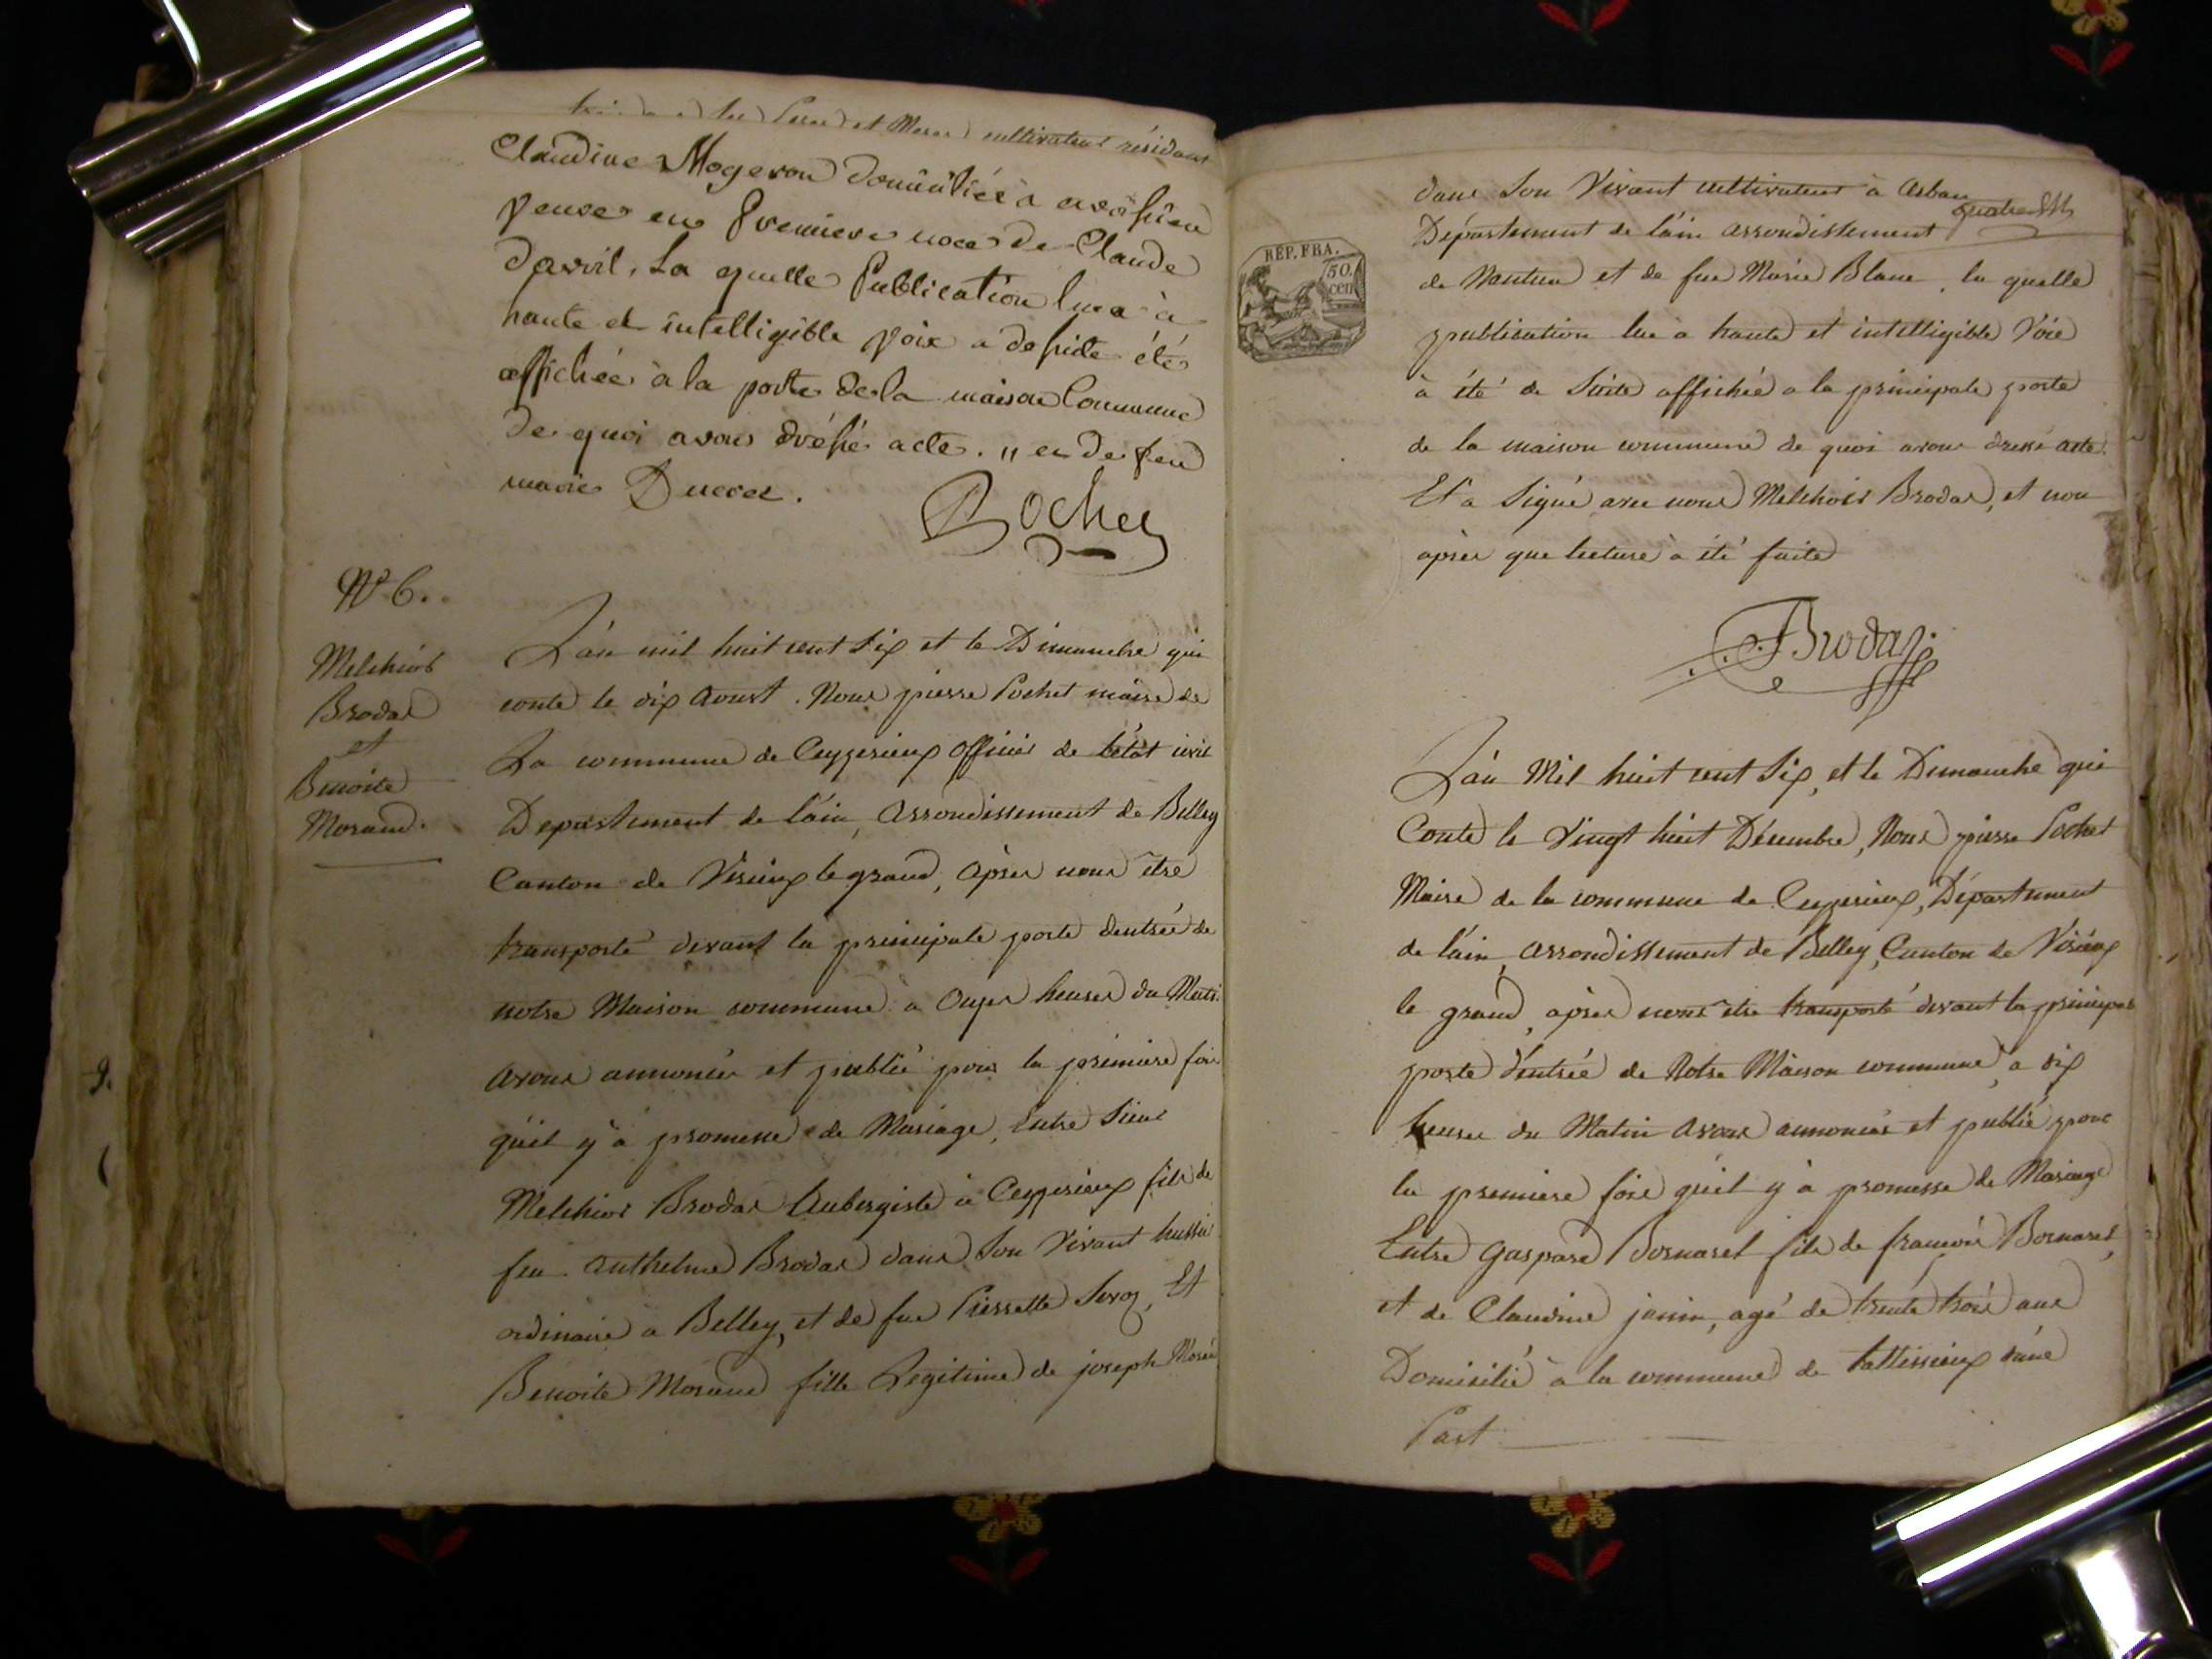 Peres et Meres cultivateur résidant
Claudine Mogeron domiciliée à avossieu
Veuve en Premiere noce de Claude
Davril, La quelle Publication lue à
haute et intelligible Voix a de suite été
affichée à la porte de la maison Commune
De quoi avons dréssé acte. " et de feu
marie Ducret.
Pochet
N° 6.
Melchior
Brodar
et
Benoite
Morand.
L'an mil huit cent Six et le Dimanche qui
conte le dix Aoust. Nous pierre Pochet maire de
La commune de Ceyzerieux Officier de l'état civil
Departement de l'ain, Arrondissement de Belley
Canton de Virieux le grand, Après nous être
transporté devant la principale porte d'entrée de
notre Maison commune à Onze heures du Matin
avons annoncée et publié pour la première fois
qu'il y à promesse de Mariage, Entre Sieur
Melchior Brodar Aubergiste à Ceyzerieux fils de
feu Anthelme Brodar dans Son Vivant huissié
ordinaire a Belley, et de fue Pierrette Seroz, Et
Benoite Morand fille Legitime de joseph Morand
dans Son Vivant cultivateur à Arban
Département de l'ain arrondissement
de Nantua et de fue Marie Blanc, la quelle
publication lue à haute et intelligible Voie
à été de Suite affichée a la principale porte
de la maison commune de quoi avons dressé acte.
Et a Signé avec nous Melchoir Brodar, et non
après que lecture à été faite
REP. FRA.
50.
cen
Brodar
L'an Mil huit cent Six, et le Dimanche qui
Conte le Vingt huit Décembre, Nous pierre Pochet
Maire de la commune de Ceyzerieux, Département
de l'ain, arrondissement de Belley, Canton de Virieux
le grand, après nous être transporté devant la principal
porte d'entrée de Notre Maison commune, a dix
heures du Matin avons annoncés et publié pour
la premiere fois qu'il y à promesse de Mariage
Entre Gaspard Bornaret fils de françois Bornaret,
et de Claudine janin, agé de trente trois ans
Domicilié à la commune de tattissieux d'une
Part